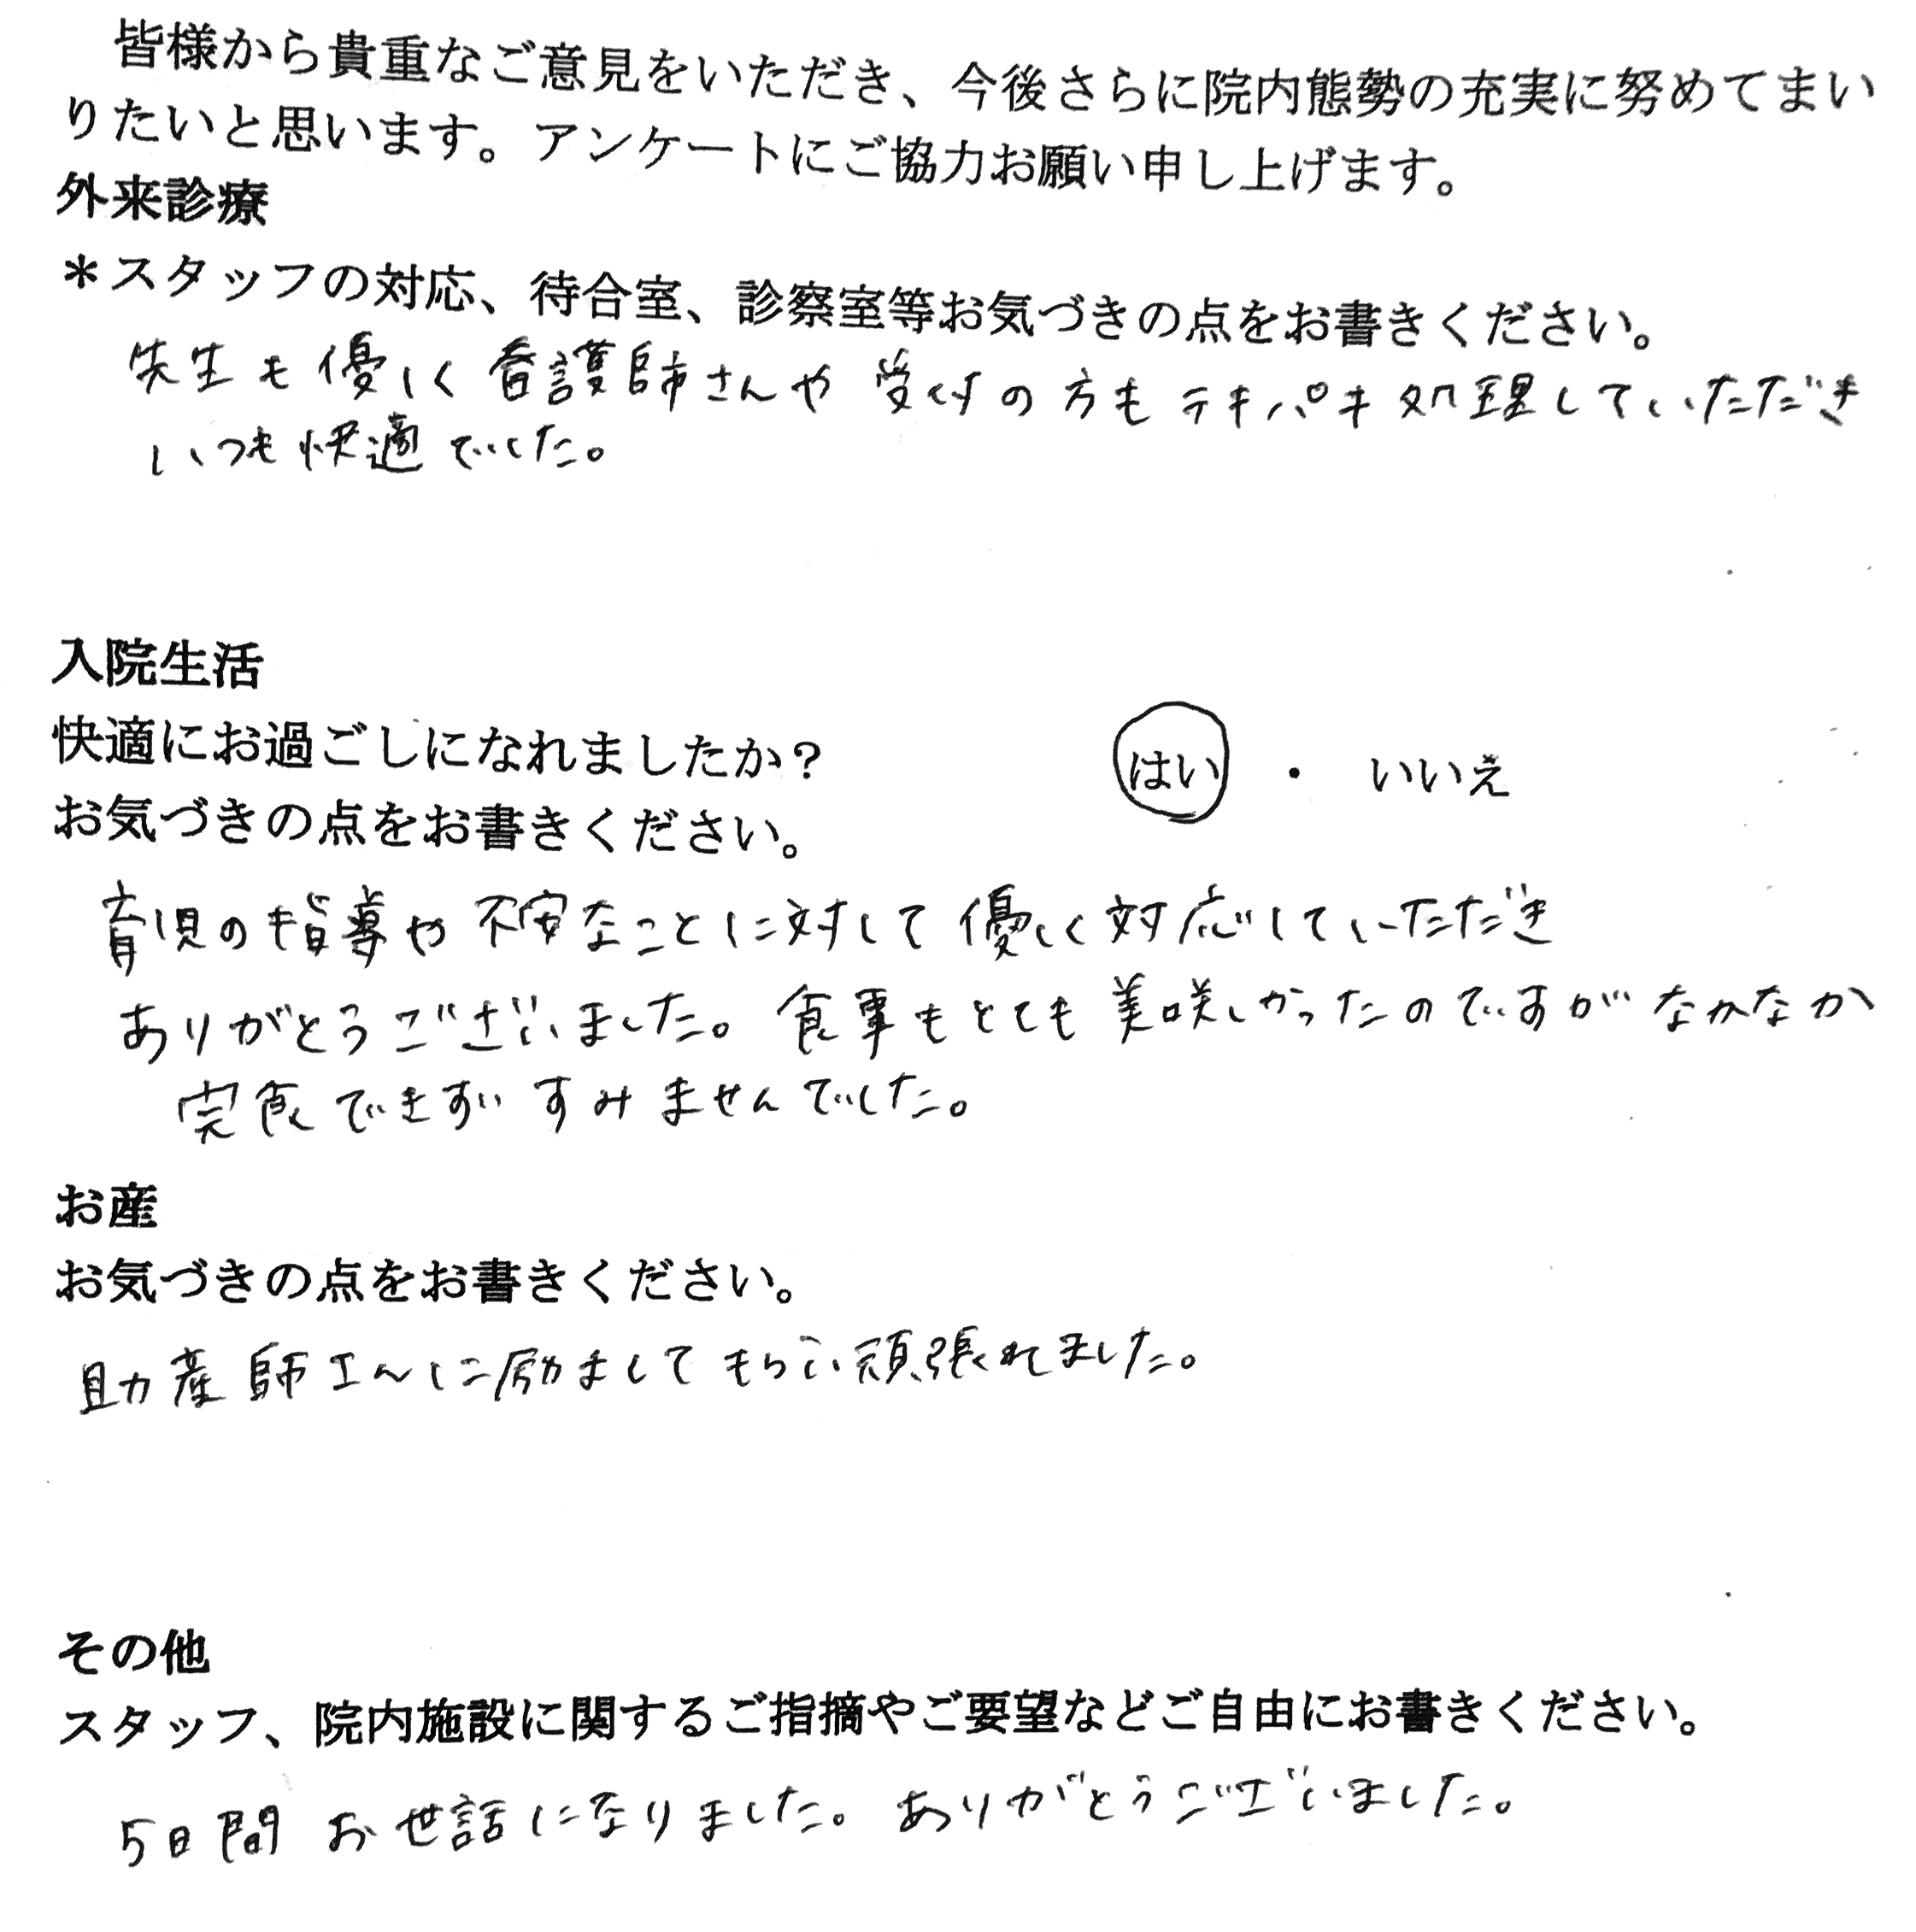 皆様から貴重なご意見をいただき、今後さらに院内態勢の充実に努めてまい
りたいと思います。アンケートにご協力お願い申し上げます。
外来診療
＊スタッフの対応、待合室、診察室等お気づきの点をお書きください。
先生も優しく看護師さんや受付の方もテキパキ処理していただき
いつも快適でした。
入院生活
快適にお過ごしになれましたか？ はい ・ いいえ
お気づきの点をお書きください。
育児の指導や不安なことに対して優しく対応していただき
ありがとうございました。食事もとても美味しかったのですがなかなか
完食できずすみませんでした。
お産
お気づきの点をお書きください。
助産師さんに励ましてもらい頑張れました。
その他
スタッフ、院内施設に関するご指摘やご要望などご自由にお書きください。
5日間お世話になりました。ありがとうございました。